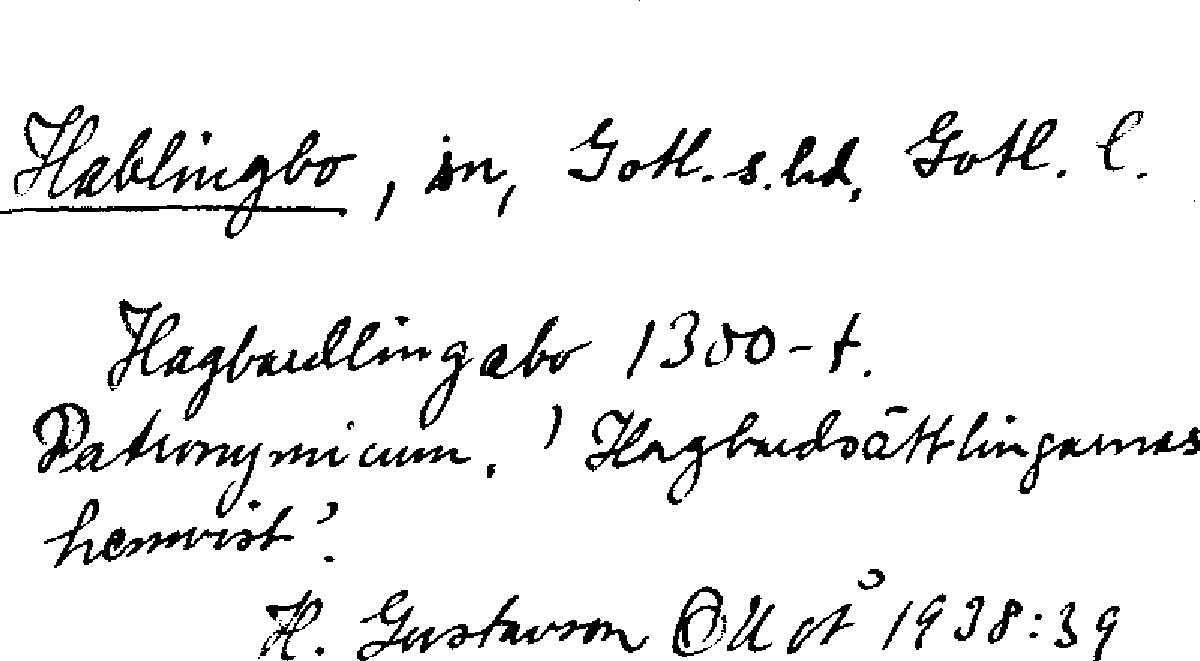 Hablingbo, sn, Gotl. s. hd, Gotl. l.
Hagbardlingabo 1300-t.
Patronymicum. 'Hagbardsättlingarnas
hemvist'.
H. Gustavson OUÅ 1938:39